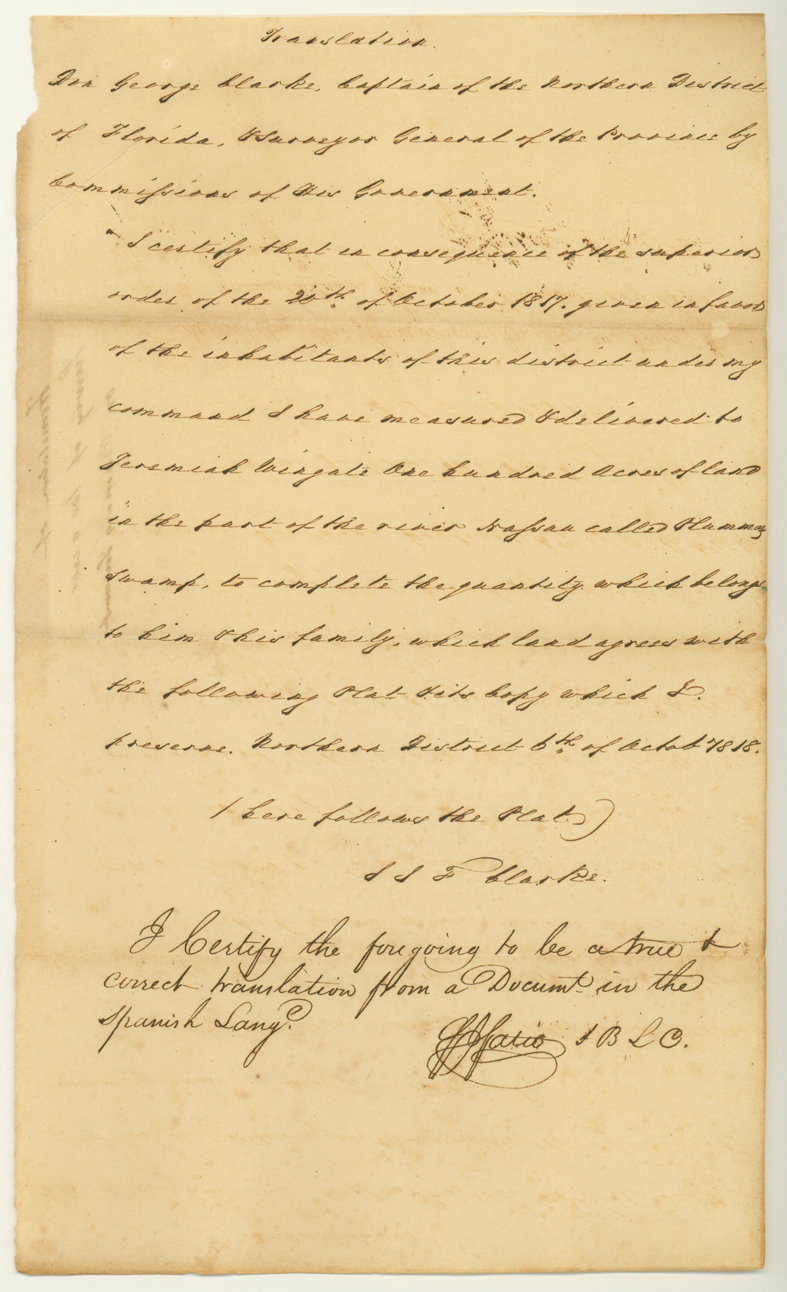 Translation.
Don George Clarke, Captain of the Northern District
of Florida, & Surveyor General of the Province by
Commissions of His Government.
I certify that in consequence of the superior
order of the 20th of October 1817. given in favor
of the inhabitants of this district under my
command I have measured & delivered to
Jeremiah Wingate One hundred Acres of land
in the part of the river Nassau called Plummers
Swamp, to complete the quantity which belongs
to him & his family, which land agrees with
the following Plat & its Copy which I.
preserve. Northern District 6th of Octob 1818.
(here follows the Plat)
Clarke.
I Certify the foregoing to be a true &
correct translation from a Documt. in the
Spanish Lange.
B L C.